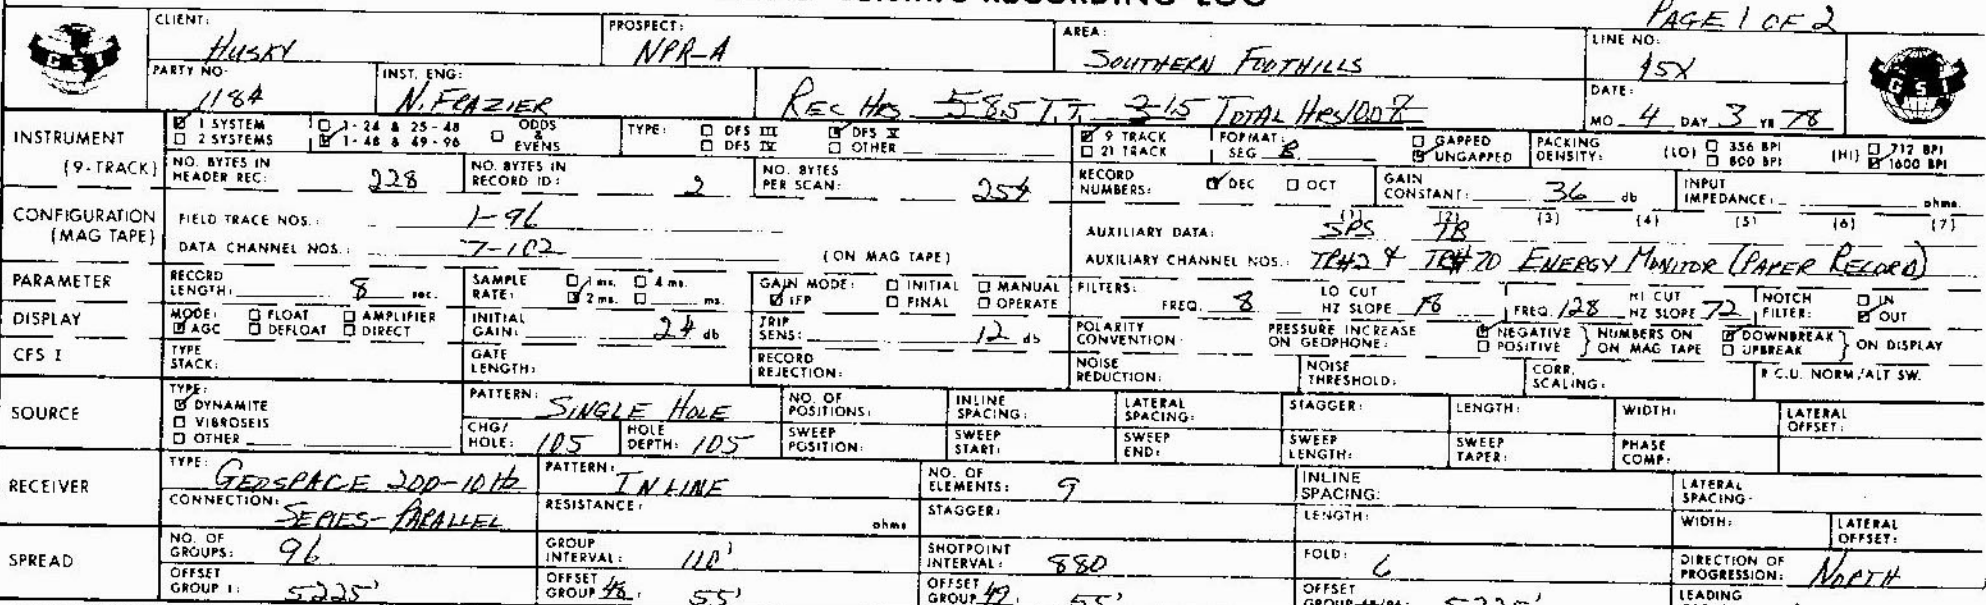 RECORDING LOG
PAGE 1 OF 2
CLIENT: HUSKY
PROSPECT: NPR-A
AREA: SOUTHERN FOOTHILLS
LINE NO: 15X
GSI
PARTY NO: 1184
INST. ENG: N. FRAZIER
REC HRS 5.85 T.T. 3.15 TOTAL HRS
DATE: MO. 4 DAY 3 YR 78
GSI
INSTRUMENT (9-TRACK)
1 SYSTEM 2 SYSTEMS
1-24 & 25-48 1-48 & 49-96
ODDS & EVENS
TYPE: DFS III DFS IV DFS V OTHER
9 TRACK 21 TRACK
FORMAT: SEG B
GAPPED UNGAPPED
PACKING DENSITY: (LO) 356 BPI 800 BPI (HI) 712 BPI 1600 BPI
NO. BYTES IN HEADER REC: 228
NO. BYTES IN RECORD ID: 2
NO. BYTES PER SCAN: 254
RECORD NUMBERS: DEC OCT
GAIN CONSTANT: 36 db
INPUT IMPEDANCE: ohms.
CONFIGURATION (MAG TAPE)
FIELD TRACE NOS.: 1-96
DATA CHANNEL NOS.: 7-102 (ON MAG TAPE)
AUXILIARY DATA: (1) SPS (2) TB (3) (4) (5) (6) (7)
AUXILIARY CHANNEL NOS.: TR#2 & TR#70 ENERGY MONITOR (PAPER RECORD)
PARAMETER
RECORD LENGTH: 8 sec.
SAMPLE RATE: 1 ms. 4 ms. 2 ms. ms.
GAIN MODE: INITIAL MANUAL IFP FINAL OPERATE
FILTERS: FREQ. 8 LO CUT HZ SLOPE 18 FREQ. 128 HI CUT HZ SLOPE 72
NOTCH FILTER: IN OUT
DISPLAY
MODE: FLOAT AMPLIFIER AGC DEFLOAT DIRECT
INITIAL GAIN: 24 db
TRIP SENS: 12 db
POLARITY CONVENTION: PRESSURE INCREASE ON GEOPHONE: NEGATIVE POSITIVE } NUMBERS ON MAG TAPE DOWNBREAK UPBREAK } ON DISPLAY
CFS I
TYPE STACK:
GATE LENGTH:
RECORD REJECTION:
NOISE REDUCTION:
NOISE THRESHOLD:
CORR. SCALING:
R.C.U. NORM/ALT SW.
SOURCE
TYPE: DYNAMITE VIBROSEIS OTHER
PATTERN: SINGLE HOLE
NO. OF POSITIONS:
INLINE SPACING:
LATERAL SPACING:
STAGGER:
LENGTH:
WIDTH:
LATERAL OFFSET:
CHG/HOLE: 105
HOLE DEPTH: 105
SWEEP POSITION:
SWEEP START:
SWEEP END:
SWEEP LENGTH:
SWEEP TAPER:
PHASE COMP:
RECEIVER
TYPE: GEOSPACE 20D-10Hz
PATTERN: INLINE
NO. OF ELEMENTS: 9
INLINE SPACING:
LATERAL SPACING:
CONNECTION: SERIES-PARALLEL
RESISTANCE: ohms
STAGGER:
LENGTH:
WIDTH:
LATERAL OFFSET:
SPREAD
NO. OF GROUPS: 96
GROUP INTERVAL: 110'
SHOTPOINT INTERVAL: 880
FOLD: 6
DIRECTION OF PROGRESSION: NORTH
OFFSET GROUP 1: 5225'
OFFSET GROUP 48: 55'
OFFSET GROUP 49: 55'
OFFSET GROUP 48/96: 5225'
LEADING